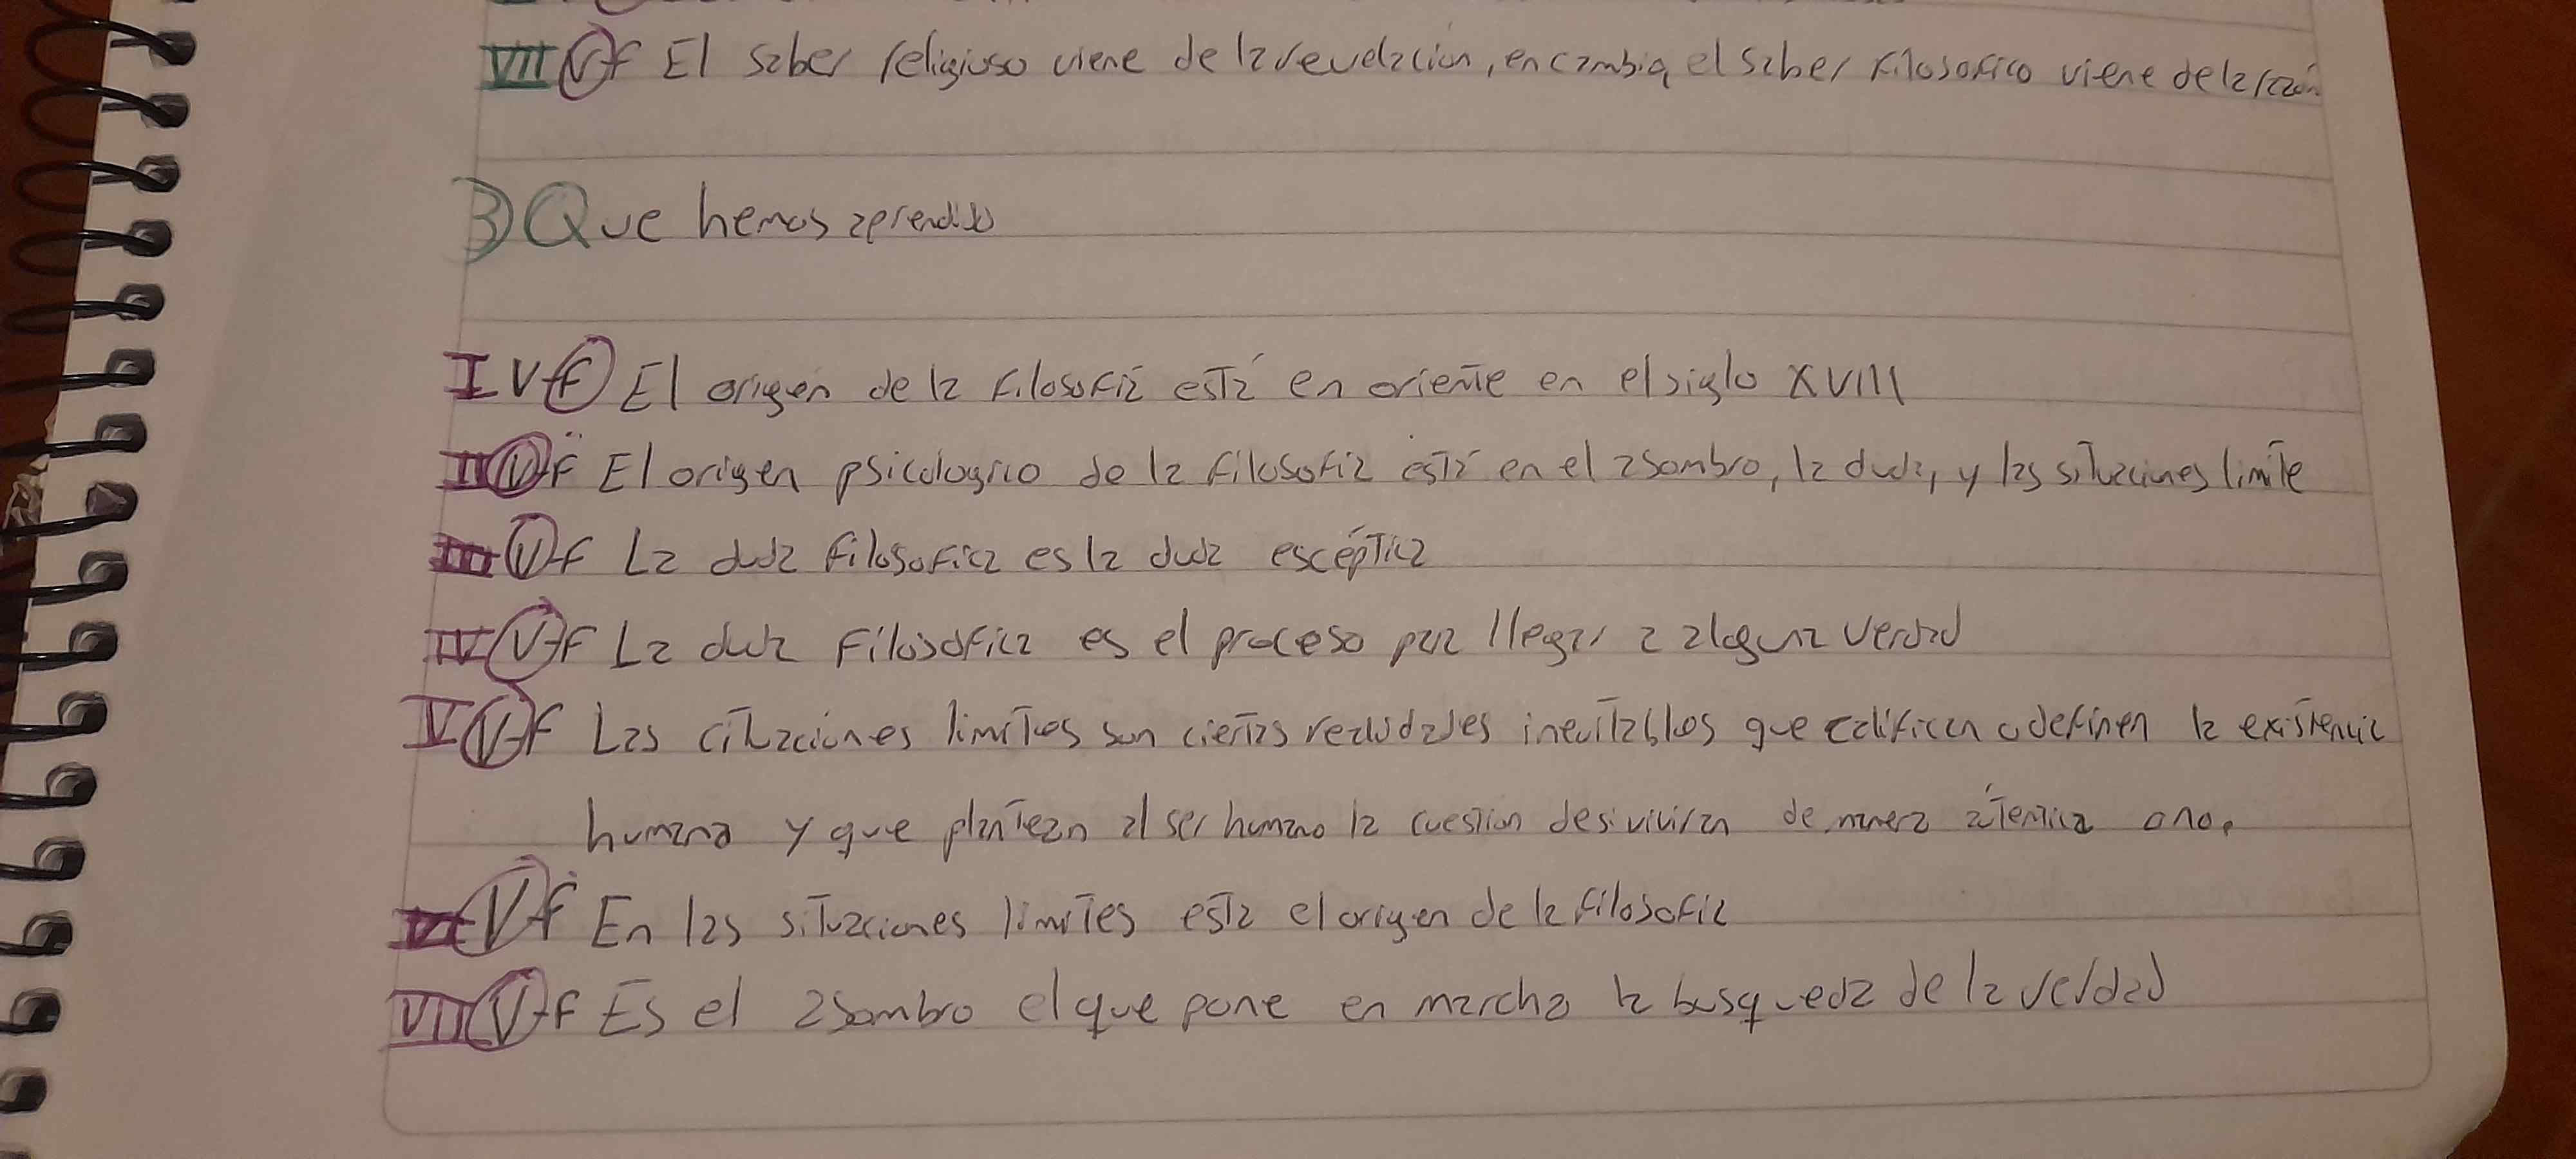 VII V-f El saber religioso viene de la revelacion, en cambio, el saber filosofico viene de la razón
3) Que hemos aprendido
I V-f El origen de la filosofía está en oriente en el siglo XVIII
II V-f El origen psicologico de la filosofia está en el asombro, la duda, y las situaciones limite
III V-f La duda filosofica es la duda escéptica
IV V-f La duda Filosofica es el proceso para llegar a alguna verdad
V V-f Las cituaciones limites son ciertas realidades inevitables que califican o definen la existencia
humana y que plantean al ser humano la cuestion de si vivirán de manera autentica o no.
VI V-f En las situaciones limites esta el origen de la filosofia
VII V-f Es el asombro el que pone en marcha la busqueda de la verdad